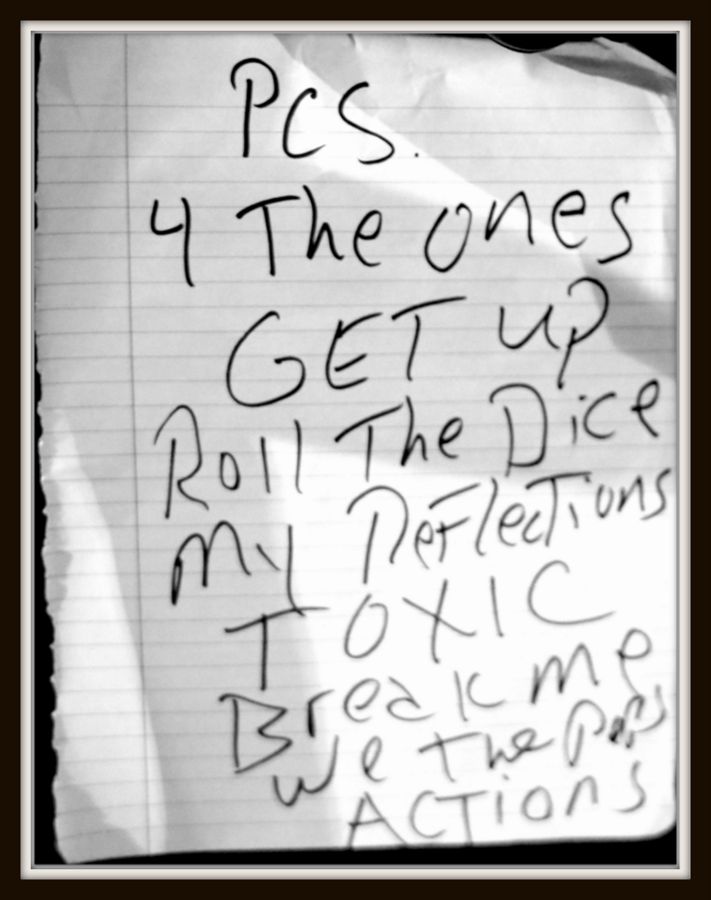 PCS.
4 The ones
GET UP
Roll The Dice
My Reflections
TOXIC
Break me
We the
ACTIONS